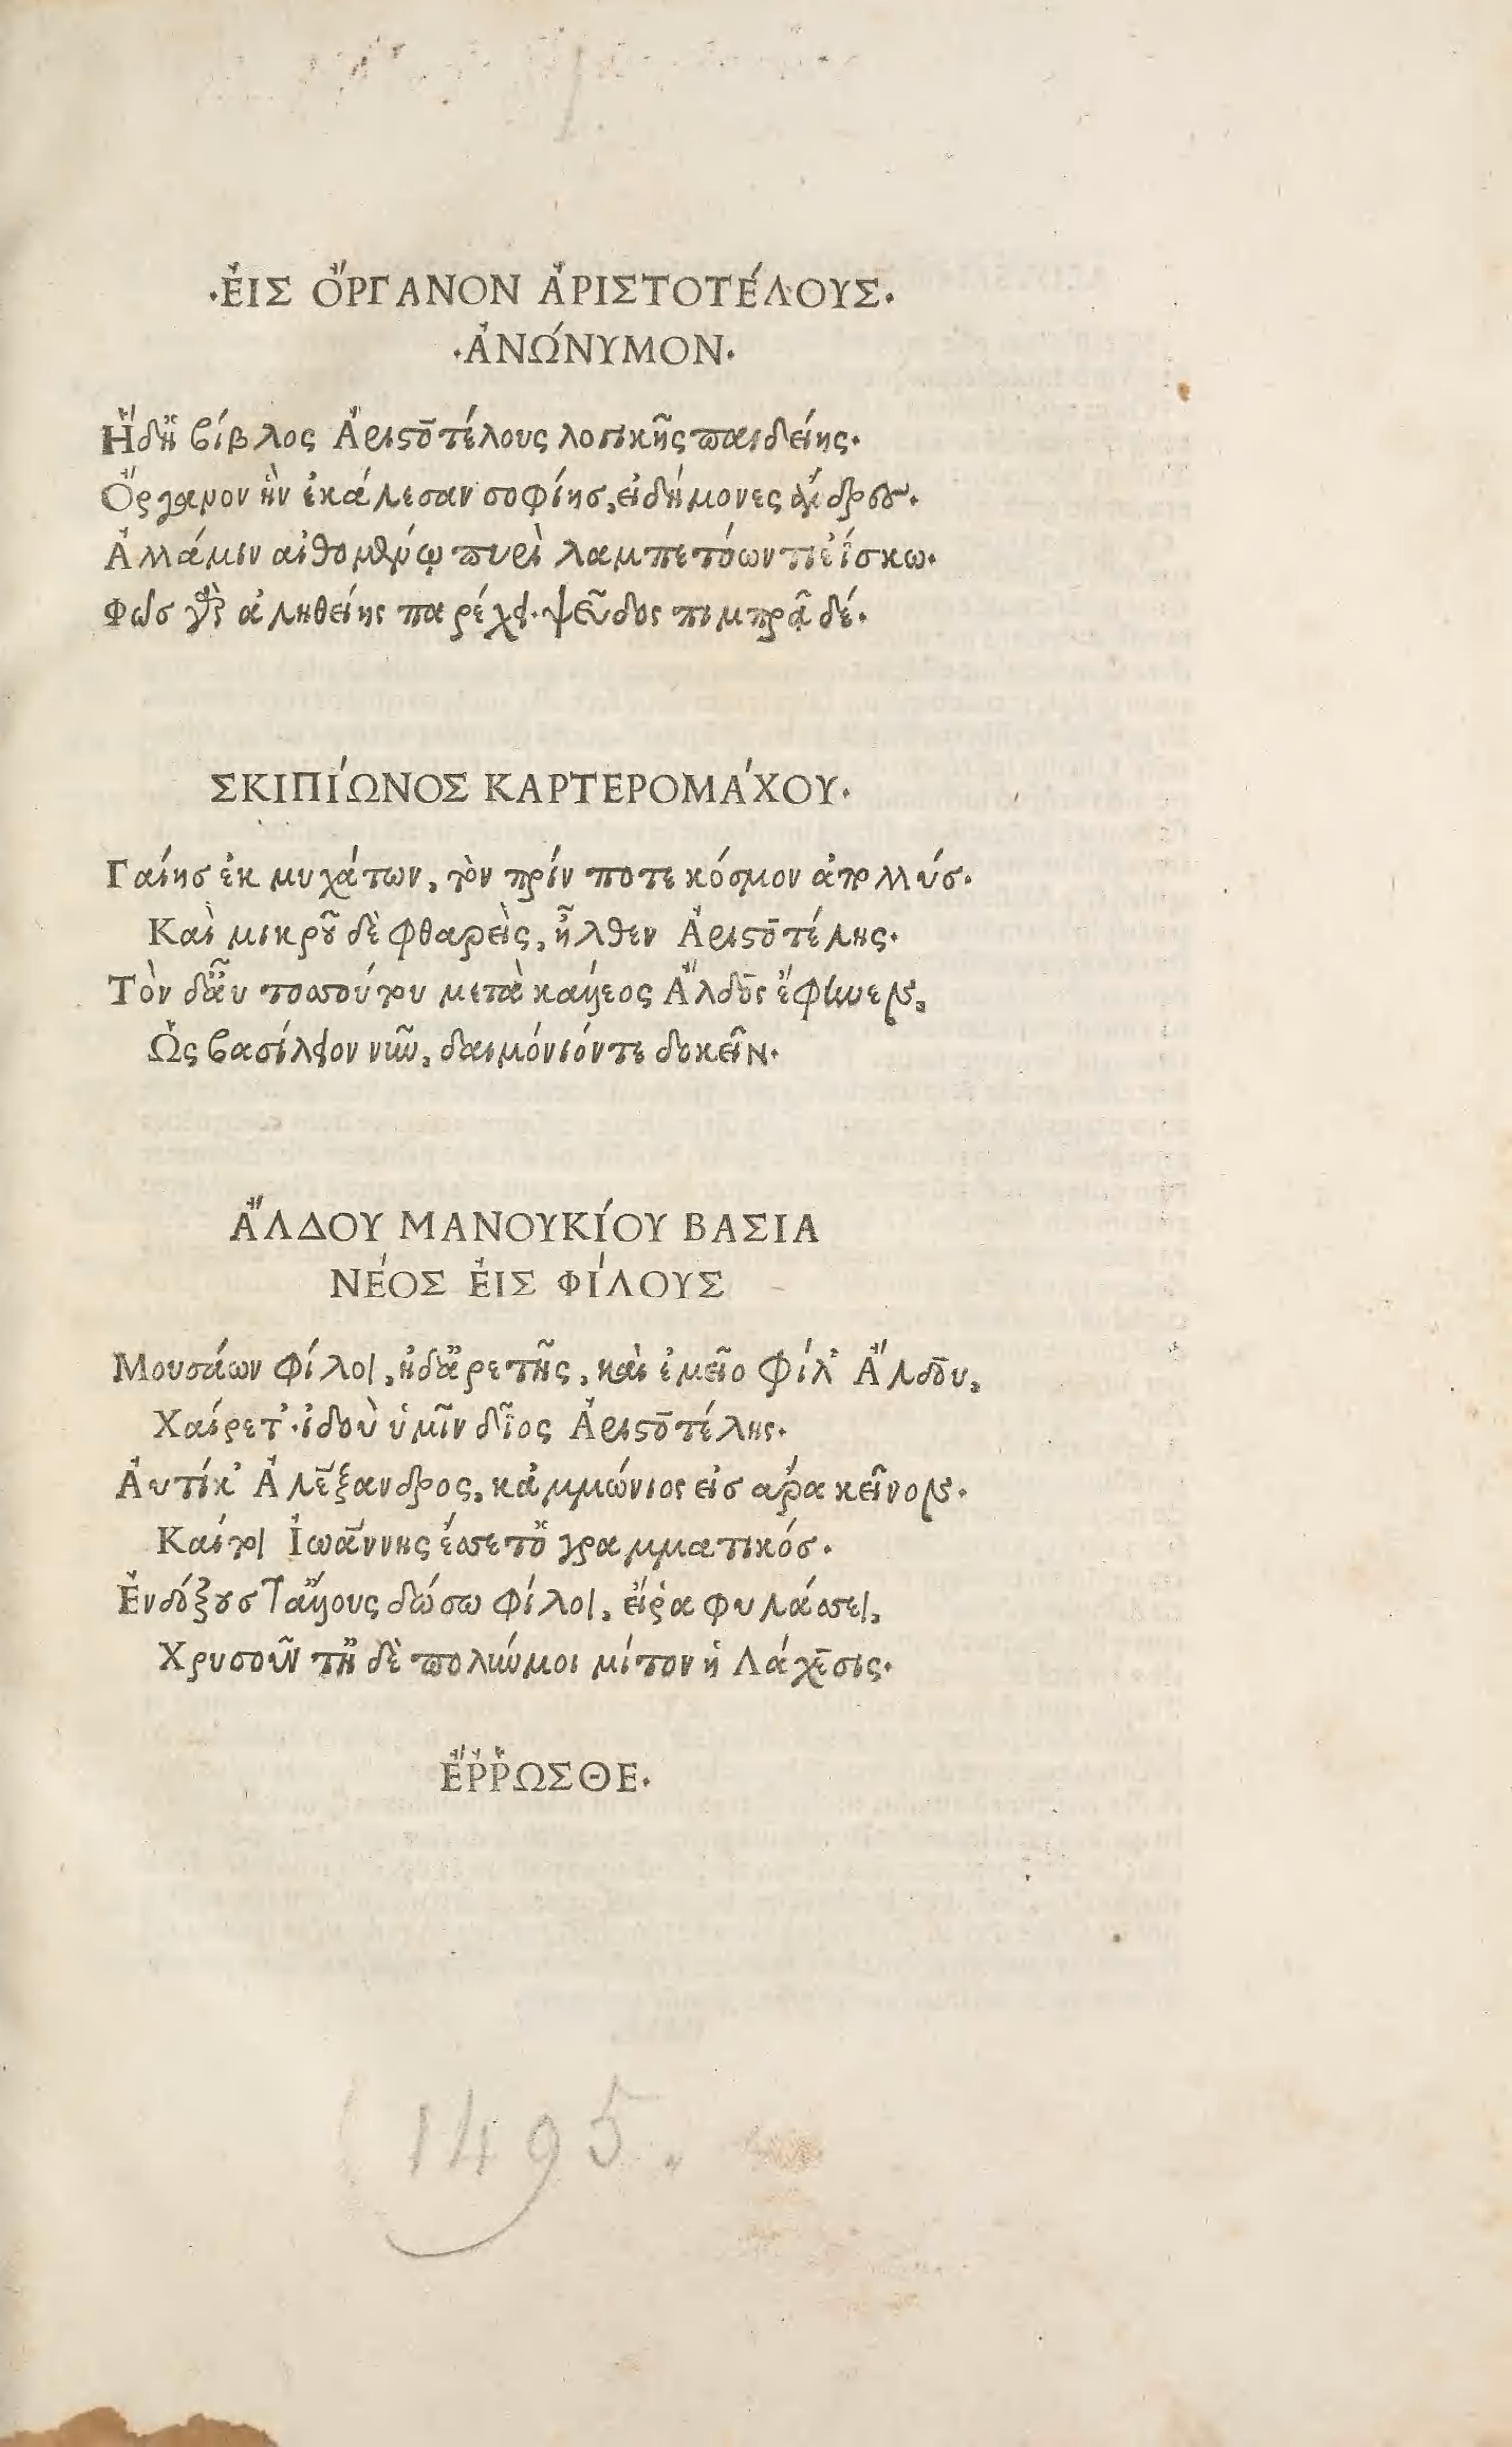 ·ἘΙΣ ὌΡΓΑΝΟΝ ἈΡΙΣΤΟΤΈΛΟΥΣ·
·ἈΝΏΝΥΜΟΝ·
Ἥδη βίβλος Ἀριστοτέλους λογικῆς παιδείης·
Ὄργανον ἣν ἐκάλεσαν σοφίης, εἰδήμονες ἄνδρες·
Ἀλλά μιν αἰθομένῳ πυρὶ λαμπετόωντι ἐΐσκω·
Φῶς γὰρ ἀληθείης παρέχει· ψεῦδος πιμπρᾷ δέ·
ΣΚΙΠΊΩΝΟΣ ΚΑΡΤΕΡΟΜΆΧΟΥ·
Γαίης ἐκ μυχάτων, τὸν πρίν ποτε κόσμον ἀπολλύς·
Καὶ μικροῦ δὲ φθαρεὶς, ἦλθεν Ἀριστοτέλης·
Τὸν δ' αὖ τοσσούτου μετὰ κάλλεος Ἄλδος ἔφηνεν,
Ὡς βασίλειον νῦν, δαιμόνιόν τε δοκεῖν·
ἌΛΔΟΥ ΜΑΝΟΥΚΊΟΥ ΒΑΣΙΑ
ΝΈΟΣ ἘΙΣ ΦΊΛΟΥΣ
Μουσάων φίλοι, ἠδ' ἀρετῆς, καὶ ἐμεῖο φίλ' Ἄλδου,
Χαίρετ'· ἰδοὺ ὑμῖν δῖος Ἀριστοτέλης·
Ἀυτίκ' Ἀλέξανδρος, κἀμμώνιος εἰς ἄρα κεῖνον·
Καί τοι Ἰωάννης ἕσσετ' ὁ γραμματικός·
Ἐνδόξους τ' ἄλλους δώσω φίλοι, εἴ ῥα φυλάσσει,
Χρυσοῦν τῇδε πολύν μοι μίτον ἡ Λάχεσις·
ἜῤῬΩΣΘΕ·
1495.